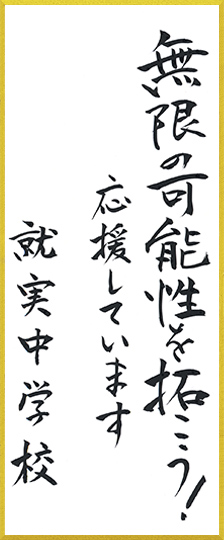 無限の可能性を拓こう!
応援しています
就実中学校